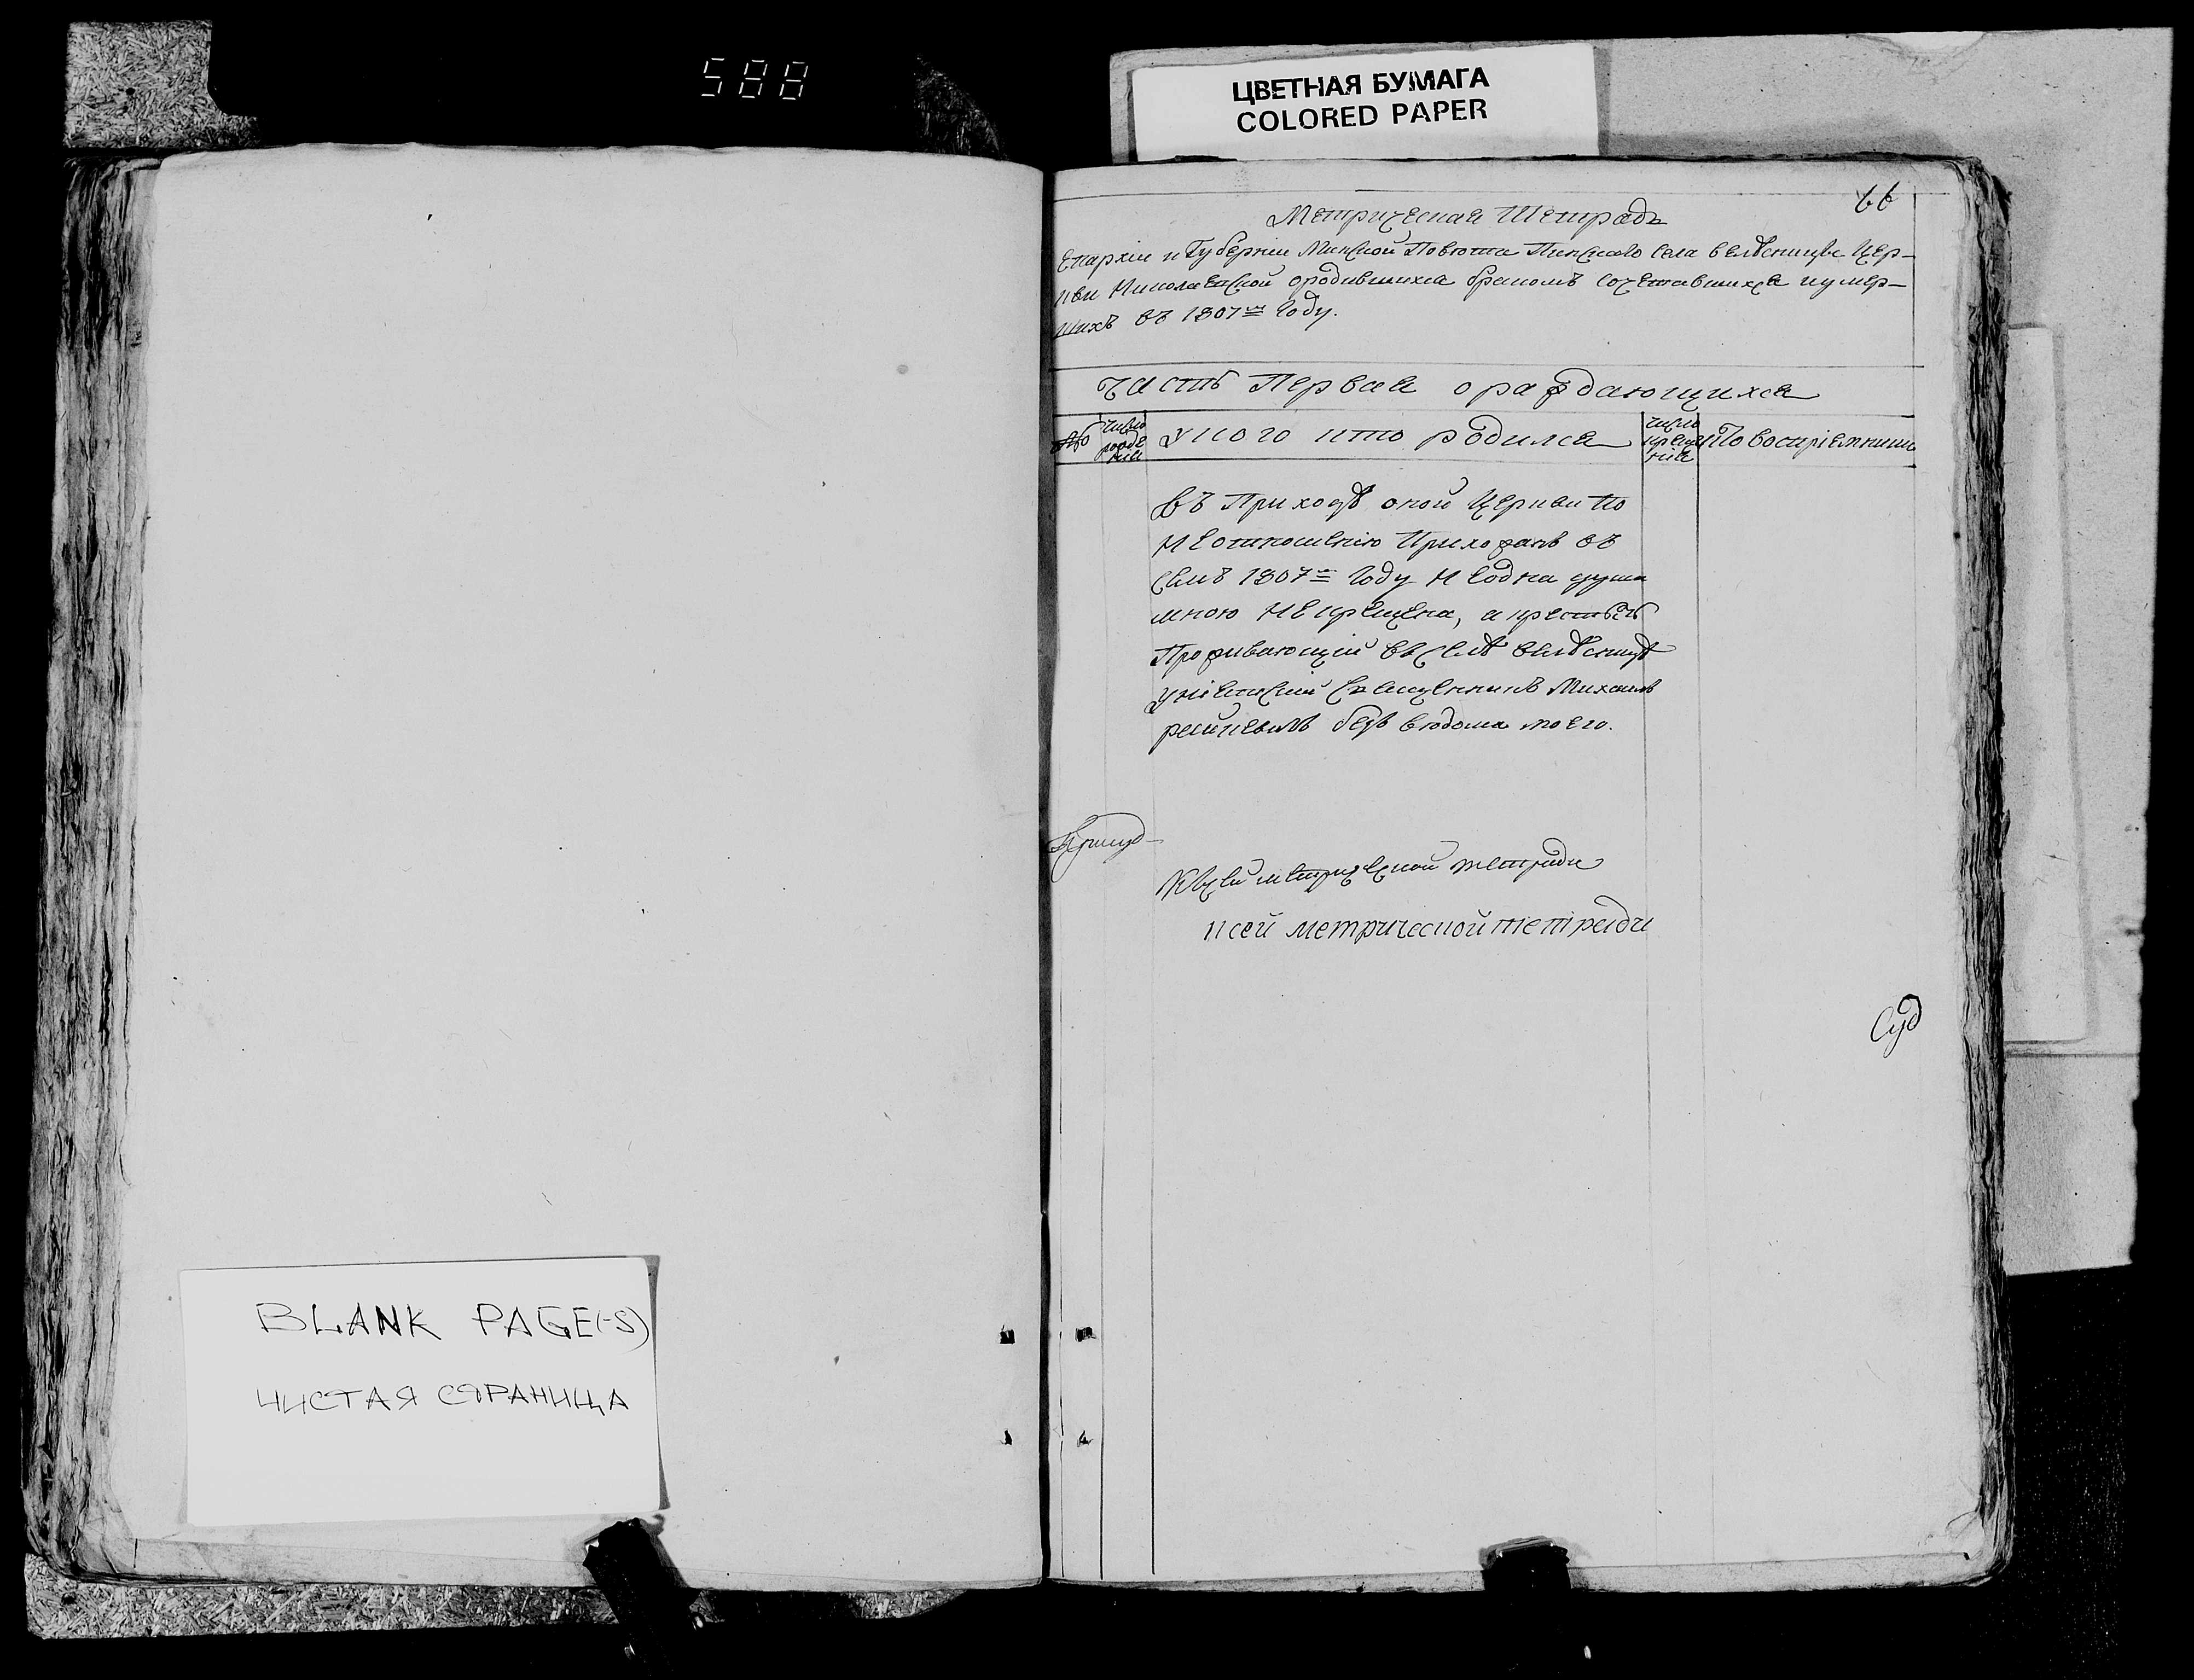 588
ЦВЕТНАЯ БУМАГА
COLORED PAPER
66
Метрическая Тетрадь
Епархіи и Губерніи Минской Повѣта Пинскаго села Велѣсницы Цер-
кви Николаевской ородившихся бракомъ сочетавшихся иумер-
шихъ въ 1807м Году.
Часть Первая ораждающихся
число рожденія
Укого кто родился
число крещенія
Кто воспріемники
Въ Приходѣ оной Церкви По
неотношенію Прихожанъ въ
семъ 1807м Году неодна душа
мною некрещена, а крестилъ
Проживающій въ селѣ Велѣсницѣ
уніятскій Священникъ Михаилъ
безъ вѣдома моего.
Къ сей метрической тетради
ксей метрической тетради
BLANK PAGE(-S)
ЧИСТАЯ СТРАНИЦА